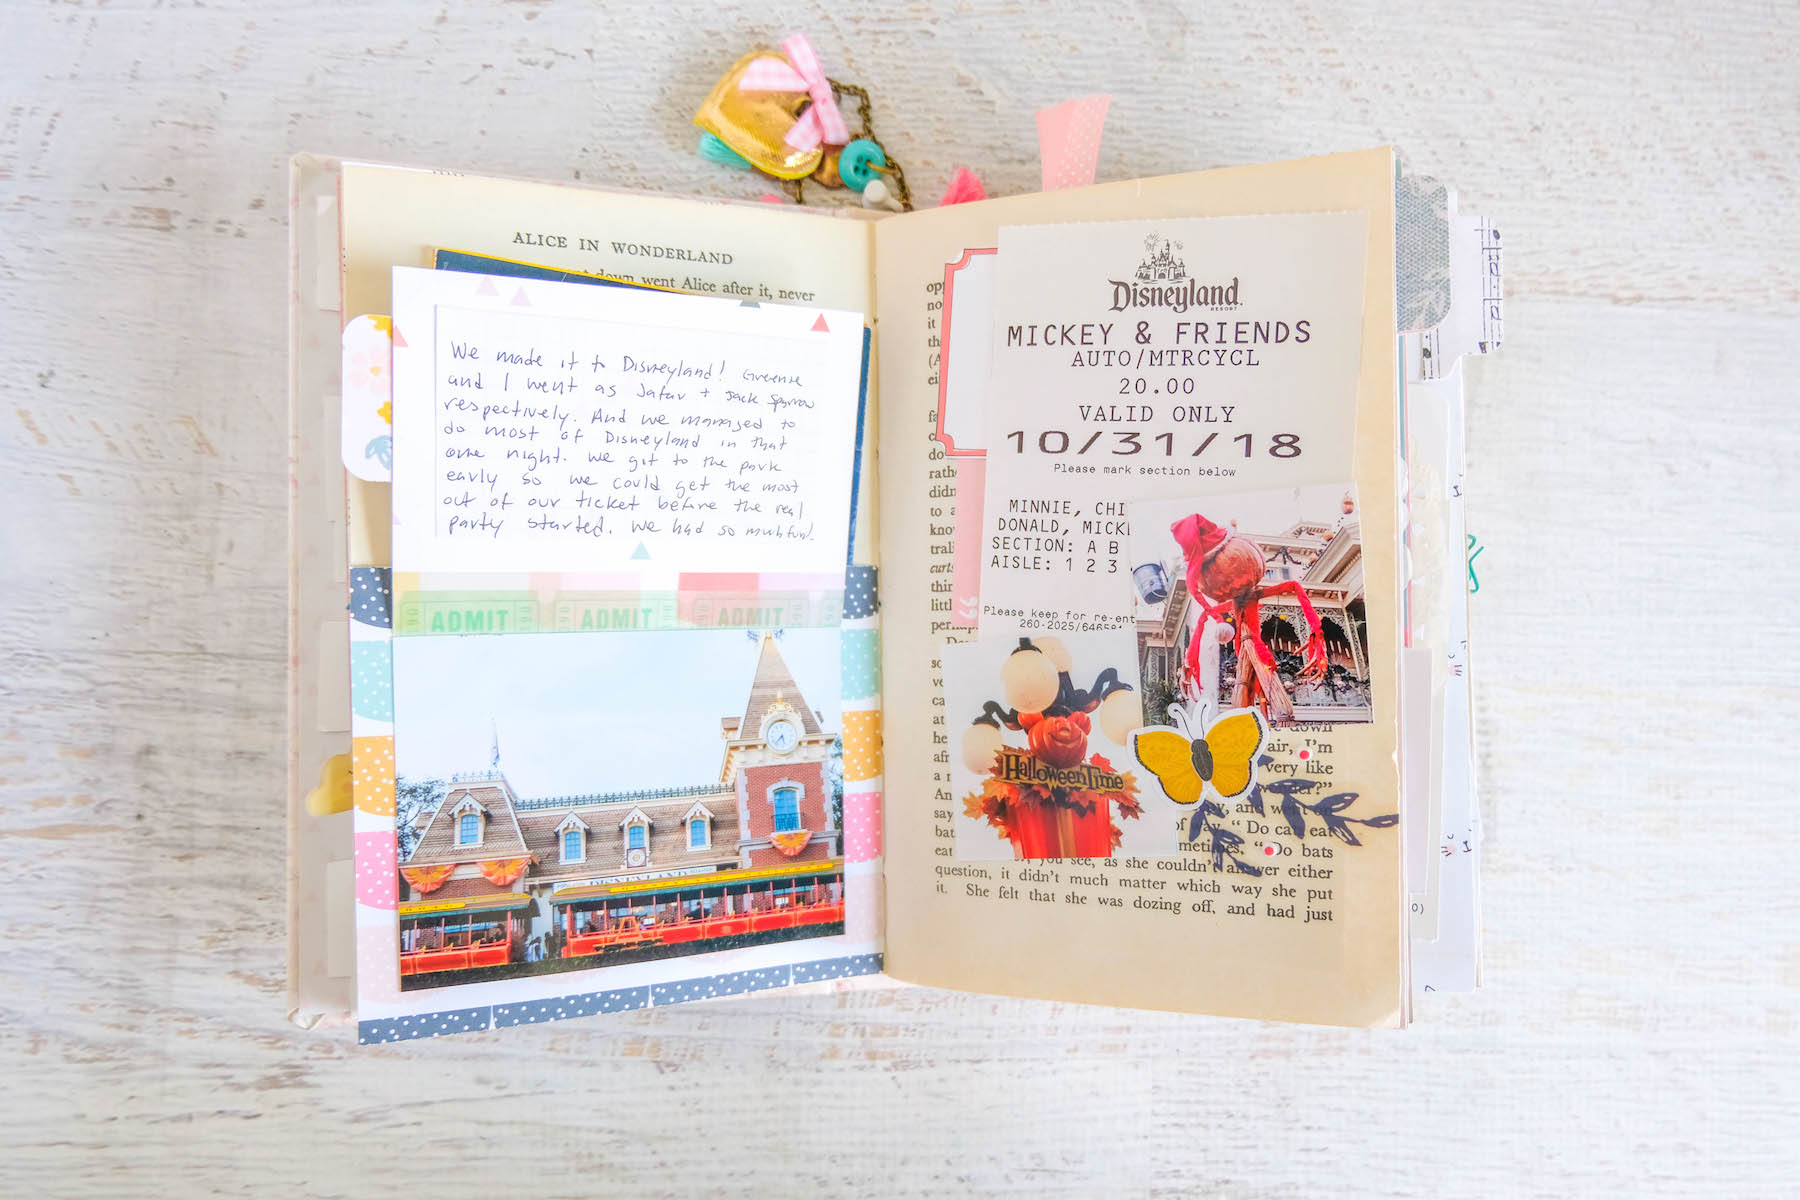 ALICE IN WONDERLAND
down went Alice after it, never
We made it to Disneyland! Greenie
and I went as Jafar + Jack Sparrow
respectively. And we managed to
do most of Disneyland in that
one night. We got to the park
early so we could get the most
out of our ticket before the real
party started. We had so much fun!
ADMIT ADMIT ADMIT
DISNEYLAND
Disneyland
RESORT
MICKEY & FRIENDS
AUTO/MTRCYCL
20.00
VALID ONLY
10/31/18
Please mark section below
MINNIE, CHI
DONALD, MICK
SECTION: A B
AISLE: 1 2 3
Please keep for re-ent
260-2025/646581
HalloweenTime
down
air, I'm
very like
and went
"Do cats eat
"Do bats
eat you see, as she couldn't answer either
question, it didn't much matter which way she put
it. She felt that she was dozing off, and had just